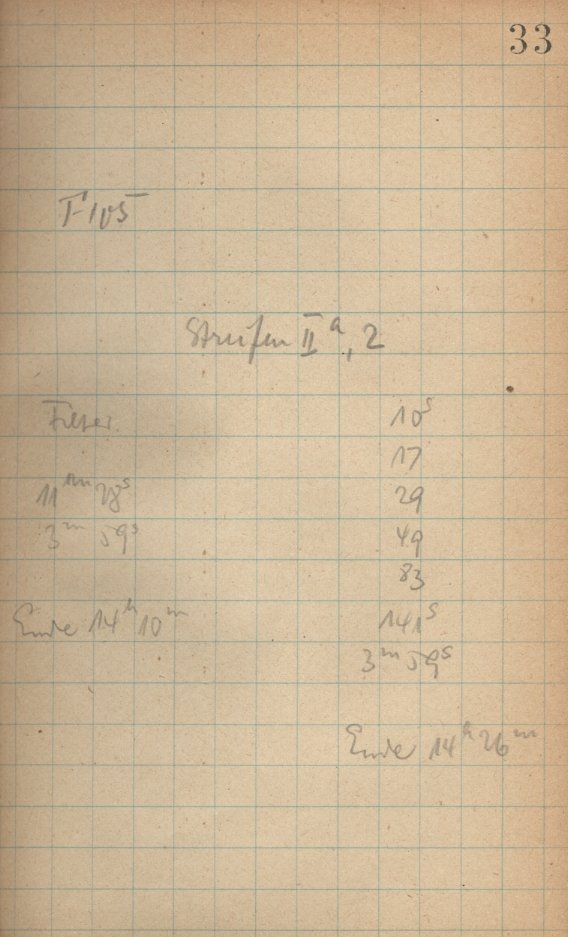 33
F 105
Streifen II a, 2
Filter
11m 28s
3m 59s
Ende 14h 10m
10s
17
29
49
83
141s
3m 59s
Ende 14h 26m